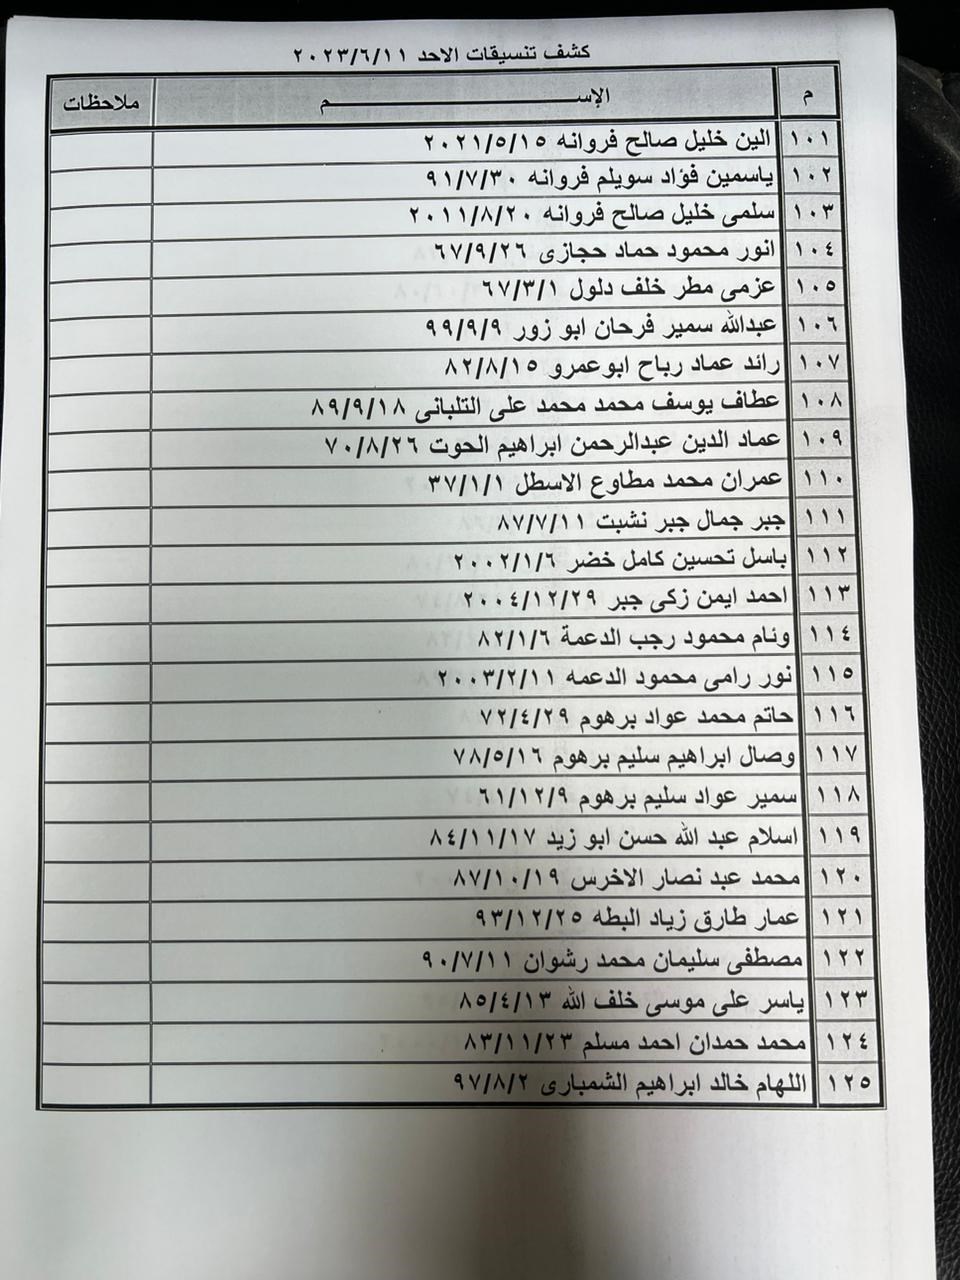 كشف تنسيقات الاحد ٢٠٢٣/٦/١١
م الإســـــــــــــــم ملاحظات
١٠١ الين خليل صالح فروانه ٢٠٢١/٥/١٥
١٠٢ ياسمين فؤاد سويلم فروانه ٩١/٧/٣٠
١٠٣ سلمى خليل صالح فروانه ٢٠١١/٨/٢٠
١٠٤ انور محمود حماد حجازى ٦٧/٩/٢٦
١٠٥ عزمى مطر خلف دلول ٦٧/٣/١
١٠٦ عبدالله سمير فرحان ابو زور ٩٩/٩/٩
١٠٧ رائد عماد رباح ابوعمرو ٨٢/٨/١٥
١٠٨ عطاف يوسف محمد محمد على التلبانى ٨٩/٩/١٨
١٠٩ عماد الدين عبدالرحمن ابراهيم الحوت ٧٠/٨/٢٦
١١٠ عمران محمد مطاوع الاسطل ٣٧/١/١
١١١ جبر جمال جبر نشبت ٨٧/٧/١١
١١٢ باسل تحسين كامل خضر ٢٠٠٢/١/٦
١١٣ احمد ايمن زكى جبر ٢٠٠٤/١٢/٢٩
١١٤ وئام محمود رجب الدعمة ٨٢/١/٦
١١٥ نور رامى محمود الدعمه ٢٠٠٣/٢/١١
١١٦ حاتم محمد عواد برهوم ٧٢/٤/٢٩
١١٧ وصال ابراهيم سليم برهوم ٧٨/٥/١٦
١١٨ سمير عواد سليم برهوم ٦١/١٢/٩
١١٩ اسلام عبد الله حسن ابو زيد ٨٤/١١/١٧
١٢٠ محمد عبد نصار الاخرس ٨٧/١٠/١٩
١٢١ عمار طارق زياد البطه ٩٣/١٢/٢٥
١٢٢ مصطفى سليمان محمد رشوان ٩٠/٧/١١
١٢٣ ياسر على موسى خلف الله ٨٥/٤/١٣
١٢٤ محمد حمدان احمد مسلم ٨٣/١١/٢٣
١٢٥ اللهام خالد ابراهيم الشمبارى ٩٧/٨/٢